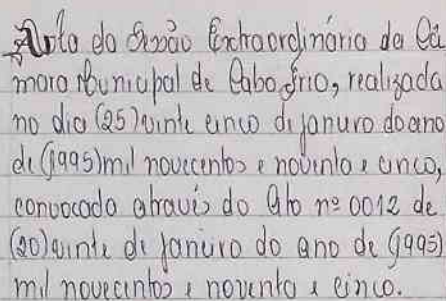 Ata da Sessão Extraordinária da Câ
mara Municipal de Cabo Frio, realizada
no dia (25) vinte cinco de janeiro do ano
de (1995) mil novecentos e noventa e cinco,
convocada através do Ato nº 0012 de
(20) vinte de janeiro do ano de (1995)
mil novecentos e noventa e cinco.